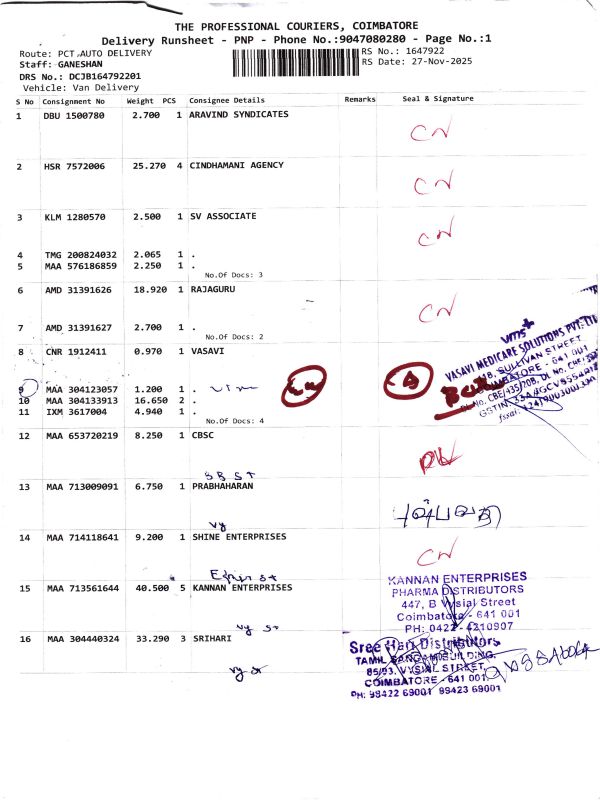 THE PROFESSIONAL COURIERS, COIMBATORE
Delivery Runsheet - PNP - Phone No.:9047080280 - Page No.:1
Route: PCT AUTO DELIVERY
RS No.: 1647922
Staff: GANESHAN
RS Date: 27-Nov-2025
DRS No.: DCJB164792201
Vehicle: Van Delivery
S No Consignment No Weight PCS Consignee Details Remarks Seal & Signature
1 DBU 1500780 2.700 1 ARAVIND SYNDICATES
CN
2 HSR 7572006 25.270 4 CINDHAMANI AGENCY
CN
3 KLM 1280570 2.500 1 SV ASSOCIATE
CN
4 TMG 200824032 2.065 1 .
5 MAA 576186859 2.250 1 .
No.Of Docs: 3
6 AMD 31391626 18.920 1 RAJAGURU
CN
7 AMD 31391627 2.700 1 .
No.Of Docs: 2
8 CNR 1912411 0.970 1 VASAVI
vms
VASAVI MEDICARE SOLUTIONS PVT. LTD
SULLIVAN STREET
COIMBATORE - 641 001
9 MAA 304123057 1.200 1 .
10 MAA 304133913 16.650 2 .
11 IXM 3617004 4.940 1 .
No.Of Docs: 4
12 MAA 653720219 8.250 1 CBSC
SBST
13 MAA 713009091 6.750 1 PRABHAHARAN
vy
14 MAA 714118641 9.200 1 SHINE ENTERPRISES
CN
15 MAA 713561644 40.500 5 KANNAN ENTERPRISES
vy st
KANNAN ENTERPRISES
PHARMA DISTRIBUTORS
447, B Vysial Street
Coimbatore - 641 001
PH: 0422 - 4210907
16 MAA 304440324 33.290 3 SRIHARI
vy st
Sree Hari Distributors
TAMIL SANGAM BUILDING,
85/93, VYSIAL STREET,
COIMBATORE - 641 001
PH: 98422 69001 99423 69001